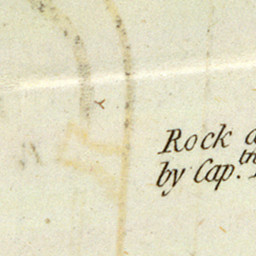 Rock
by Cap.